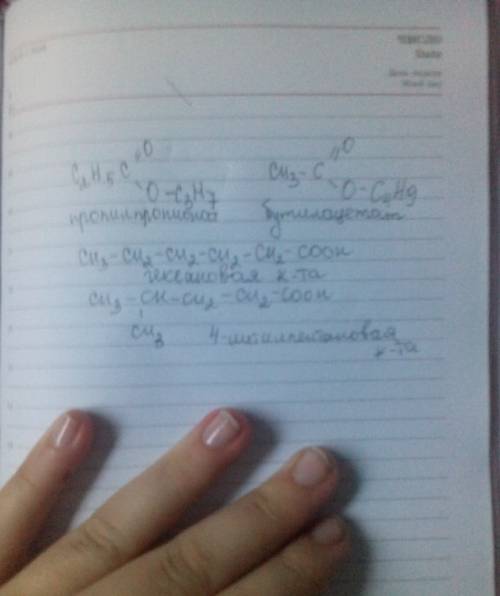 C2H5 C =O O-C3H7
CH3-C =O O-C4H9
пропилпропионат
бутилацетат
CH3-CH2-CH2-CH2-CH2-COOH
гексановая к-та
CH3-CH-CH2-CH2-COOH
CH3
4-метилпентановая
к-та